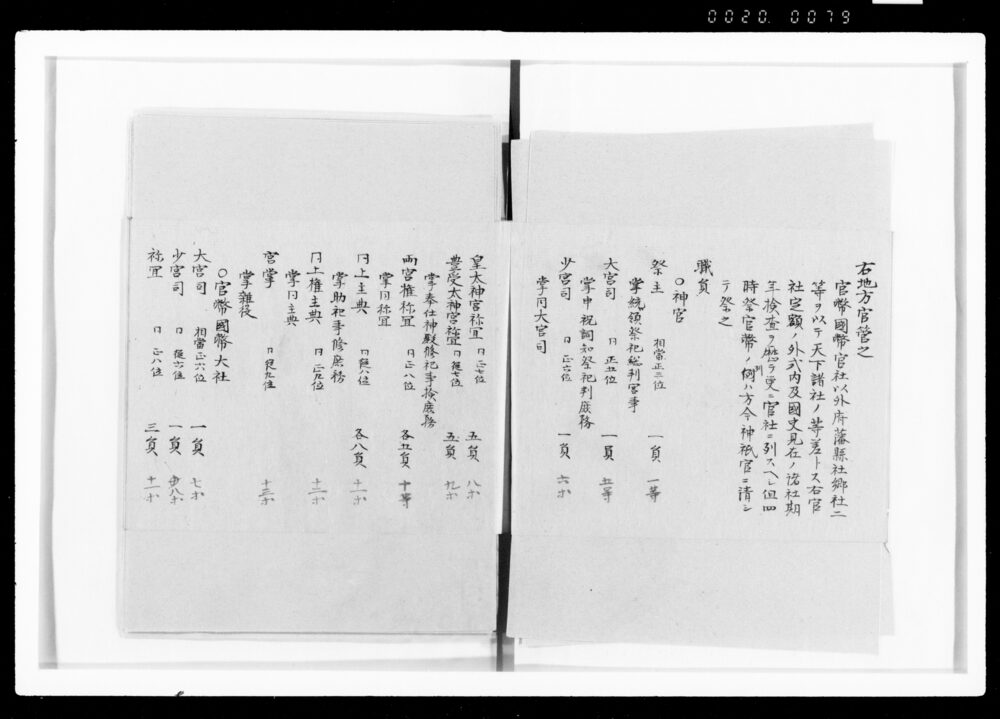 0020.0079
右地方官管之
官幣國幣官社以外府藩縣社郷社二
等ヲ以テ天下諸社ノ等差トス右官
社定額ノ外式内及國史見在ノ諸社期
年檢查ヲ歷テ更ニ官社ニ列スヘシ但四
時祭官幣ノ例ハ方今神祇官ニ請シ
テ祭之
職員
〇神宮
祭主 相當正三位 一員 一等
掌統領祭祀総判宮事
大宮司 同 正五位 一員 五等
掌申祝詞知祭祀判庶務
少宮司 同 正六位 一員 六等
掌同大宮司
皇大神宮祢宜 同 正七位 五員 八等
豊受太神宮祢宜 同 従七位 五員 九等
掌奉仕神殿修祀事検庶務
両宮権祢宜 同 正八位 各五員 十等
掌同祢宜
同上主典 同 従八位 各八員 十一等
掌助祀事修庶務
同上権主典 同 正九位 十二等
掌同主典
宮掌 同 従九位 十三等
掌雜役
〇官幣國幣大社
大宮司 相當正六位 一員 七等
少宮司 同 従六位 一員 八等
祢宜 同 正八位 三員 十一等